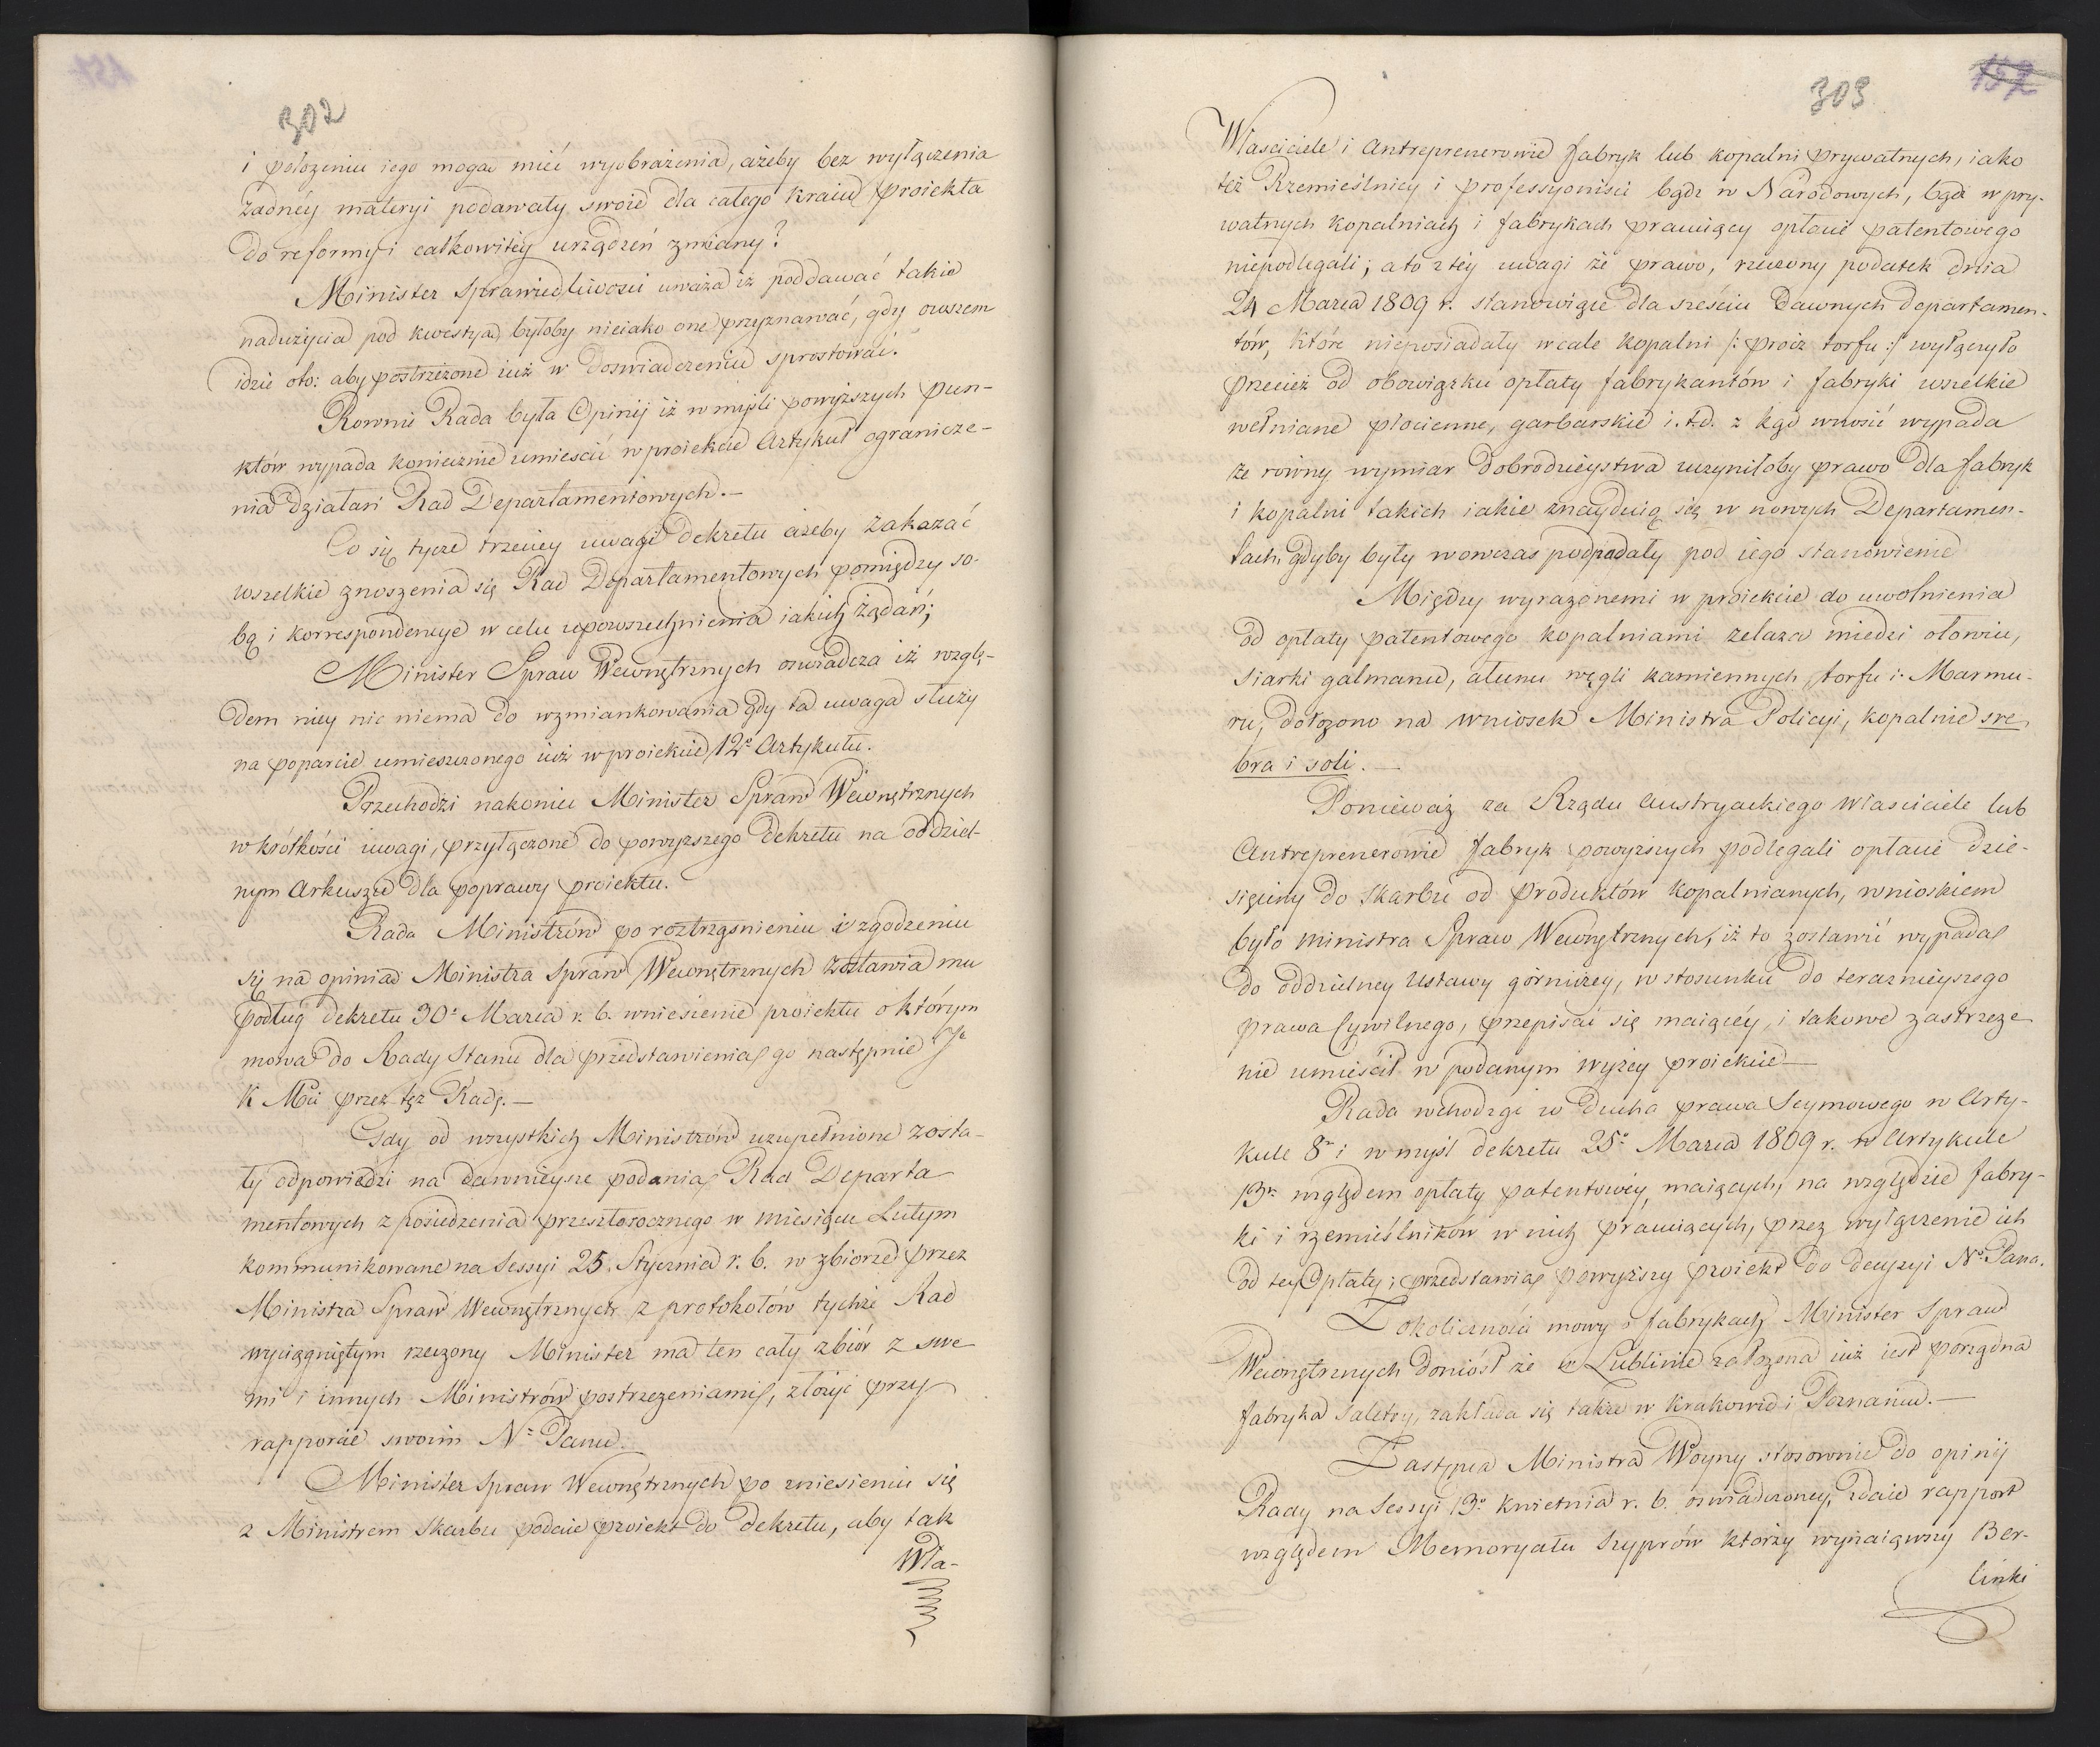 302
i położeniu iego mogą mieć wyobrażenia, ażeby bez wyłączenia
żadnéy materyi podawały swoie dla całego kraiu proiekta
do reformy i całkowitéy urządzeń zmiany?
Minister Sprawiedliwosci uważa iż poddawać takie
nadużycia pod kwestyą byłoby nieiako one przyznawać, gdy owszem
idzie oto: aby postrzeżone iuż w doswiadczeniu sprostować.
Rownie Rada była Opinij iż w myśli powyższych pun-
któw wypada koniecznie umieścić w proiekcie Artykuł ogranicze-
nia działań Rad Departamentowych.—
Co się tycze trzeciey uwagi dekretu ażeby zakazać
wszelkie znoszenia się Rad Departamentowych pomiędzy so-
bą i korrespondencye w celu upowszechnienia iakich żądań;
Minister Spraw Wewnętrznych oswiadcza iż wzglę-
dem niey nic niema do wzmiankowania gdy ta uwaga służy
na poparcie umieszczonego iuż w proiekcie 12º Artykułu.
Przechodzi nakoniec Minister Spraw Wewnętrznych
w krótkości uwagi, przyłączone do powyższego dekretu na oddziel-
nym Arkuszu dla poprawy proiektu.
Rada Ministrów po roztrząśnieniu i zgodzeniu
się na opinią Ministra Spraw Wewnętrznych zostawia mu
podług dekretu 30º Marca r. b. wniesienie proiektu o którym
mowa do Rady Stanu dla przedstawienia go następnie J.
K Mci przez też Radę.—
Gdy od wszystkich Ministrów uzupełnione zosta-
ły odpowiedzi na dawnieysze podania Rad Departa
mentowych z posiedzenia przeszłorocznego w miesiącu Lutym
kommunikowane na Sessyi 25. Stycznia r. b. w zbiorze przez
Ministra Spraw Wewnętrznych z protokołów tychże Rad
wyciągniętym rzeczony Minister ma ten cały zbiór z swe
mi i innych Ministrów postrzeżeniami, złożyć przy
rapporcie swoim Nº Panu.
Minister Spraw Wewnętrznych po zniesieniu się
z Ministrem Skarbu podaie proiekt do dekretu, aby tak
Wła-
303
152
Własciciele i Antreprenerowie fabryk lub kopalni prywatnych, iako
też Rzemieślnicy i professyonisci bądź w Narodowych, bądź w pry-
watnych kopalniach i fabrykach pracuiący opłacie patentowego
niepodlegali; a to z téy uwagi że prawo, rzeczony podatek dnia
24 Marca 1809 r. stanowiące dla sześciu dawnych departamen-
tów, które nieposiadały wcale kopalni /: prócz torfu :/ wyłączyło
przecież od obowiązku opłaty fabrykantów i fabryki wszelkie
wełniane płocienne, garbarskie i. t. d. z kąd wnosić wypada
że równy wymiar dobrodzieystwa uczyniłoby prawo dla fabryk
i kopalni takich iakie znayduią się w nowych Departamen-
tach gdyby były wowczas podpadały pod iego stanowienie
Między wyrażonemi w proiekcie do uwolnienia
od opłaty patentowego kopalniami żelaza miedzi ołowiu,
siarki galmanu, ałunu węgli kamiennych, torfu i Marmu-
ru, dołożono na wniosek Ministra Policyi, kopalnie sre
bra i soli.—
Ponieważ za Rządu Austryackiego własciciele lub
Antreprenerowie fabryk powyższych podlegali opłacie dzie-
sięciny do skarbu od produktów kopalnianych, wnioskiem
było Ministra Spraw Wewnętrznych, iż to zostawić wypada
do oddzielney Ustawy górniczey, w stosunku do teraznieyszego
prawa Cywilnego, przepisać się maiącéy, i takowe zastrzeże
nie umieścił w podanym wyżey proiekcie—
Rada wchodząc w ducha prawa Seymowego w Arty-
kule 8º i w myśl dekretu 25º Marca 1809 r. w Artykule
13º względem opłaty patentowéy, maiących na względzie fabry-
ki i rzemieślników w nich pracuiących, przez wyłączenie ich
od tey Opłaty; przedstawia powyższy proiekt do decyzyi Nº Pana.
Z okoliczności mowy o fabrykach Minister Spraw
Wewnętrznych doniósł że w Lublinie założona iuż iest porządna
fabryka Saletry, zakłada się także w Krakowie i Poznaniu.—
Zastępca Ministra Woyny stosownie do opinij
Rady na Sessyi 13º kwietnia r. b. oswiadczoney, zdaie rapport
względem Memoryału szyprów którzy wynaiąwszy Ber-
linki